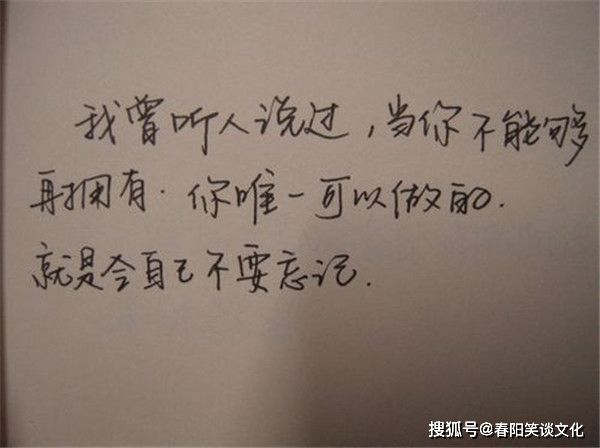 我曾听人说过，当你不能够
再拥有．你唯一可以做的．
就是令自己不要忘记．
搜狐号@春阳笑谈文化